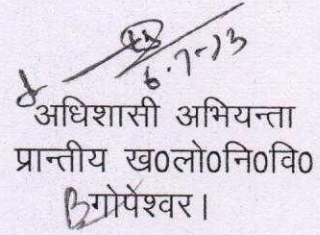 6.7-13
अधिशासी अभियन्ता
प्रान्तीय ख0लो0नि0वि0
गोपेश्वर।